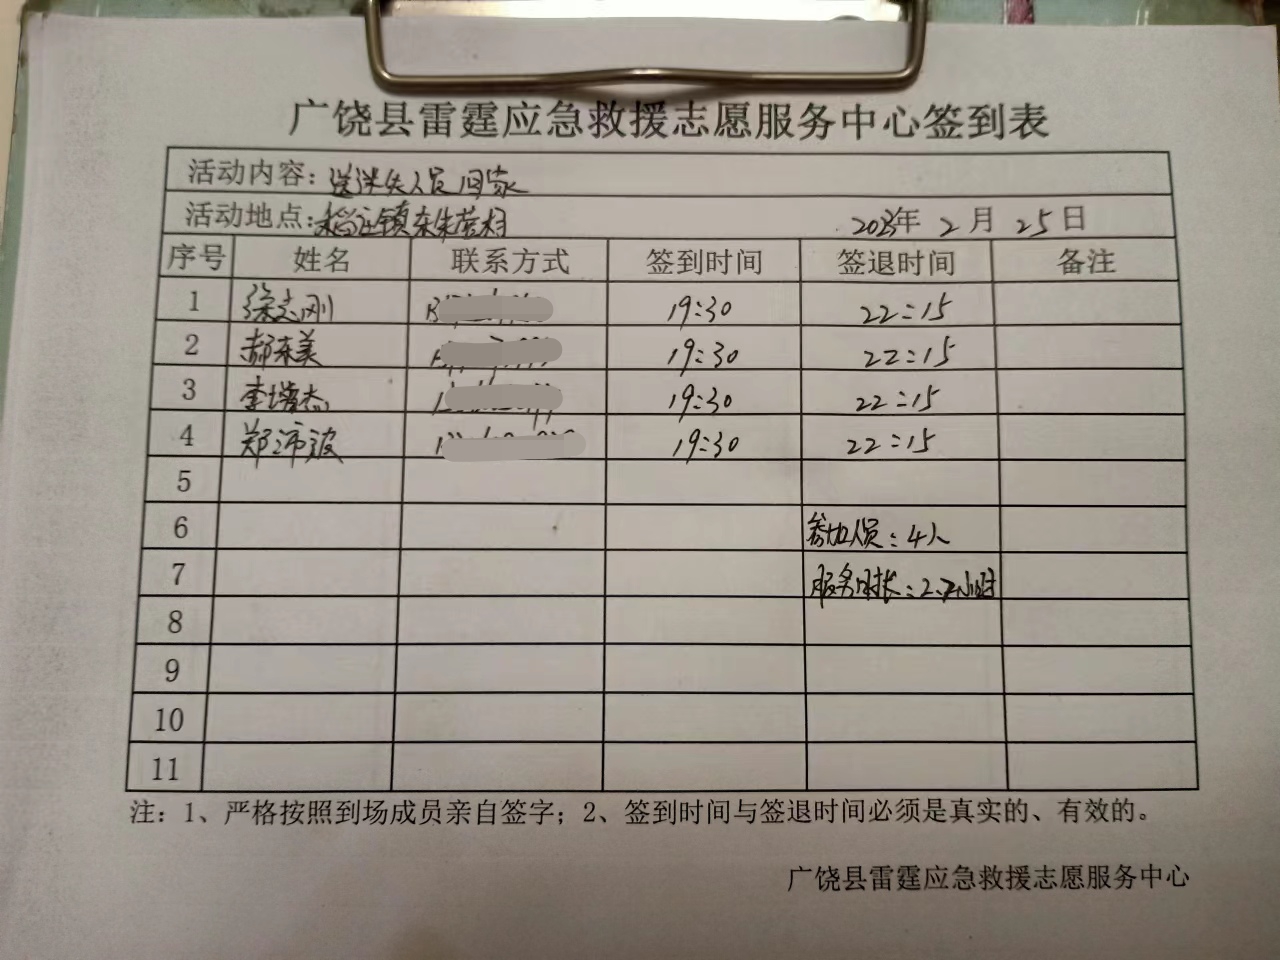 广饶县雷霆应急救援志愿服务中心签到表
活动内容：送迷失人员回家
活动地点：稻庄镇东朱营村 2023年 2 月 25 日
序号 姓名 联系方式 签到时间 签退时间 备注
1 徐志刚 19:30 22:15
2 郝东美 19:30 22:15
3 李增杰 19:30 22:15
4 郑沛波 19:30 22:15
5
6 参加人员：4人
7 服务时长：2.7小时
8
9
10
11
注：1、严格按照到场成员亲自签字；2、签到时间与签退时间必须是真实的、有效的。
广饶县雷霆应急救援志愿服务中心